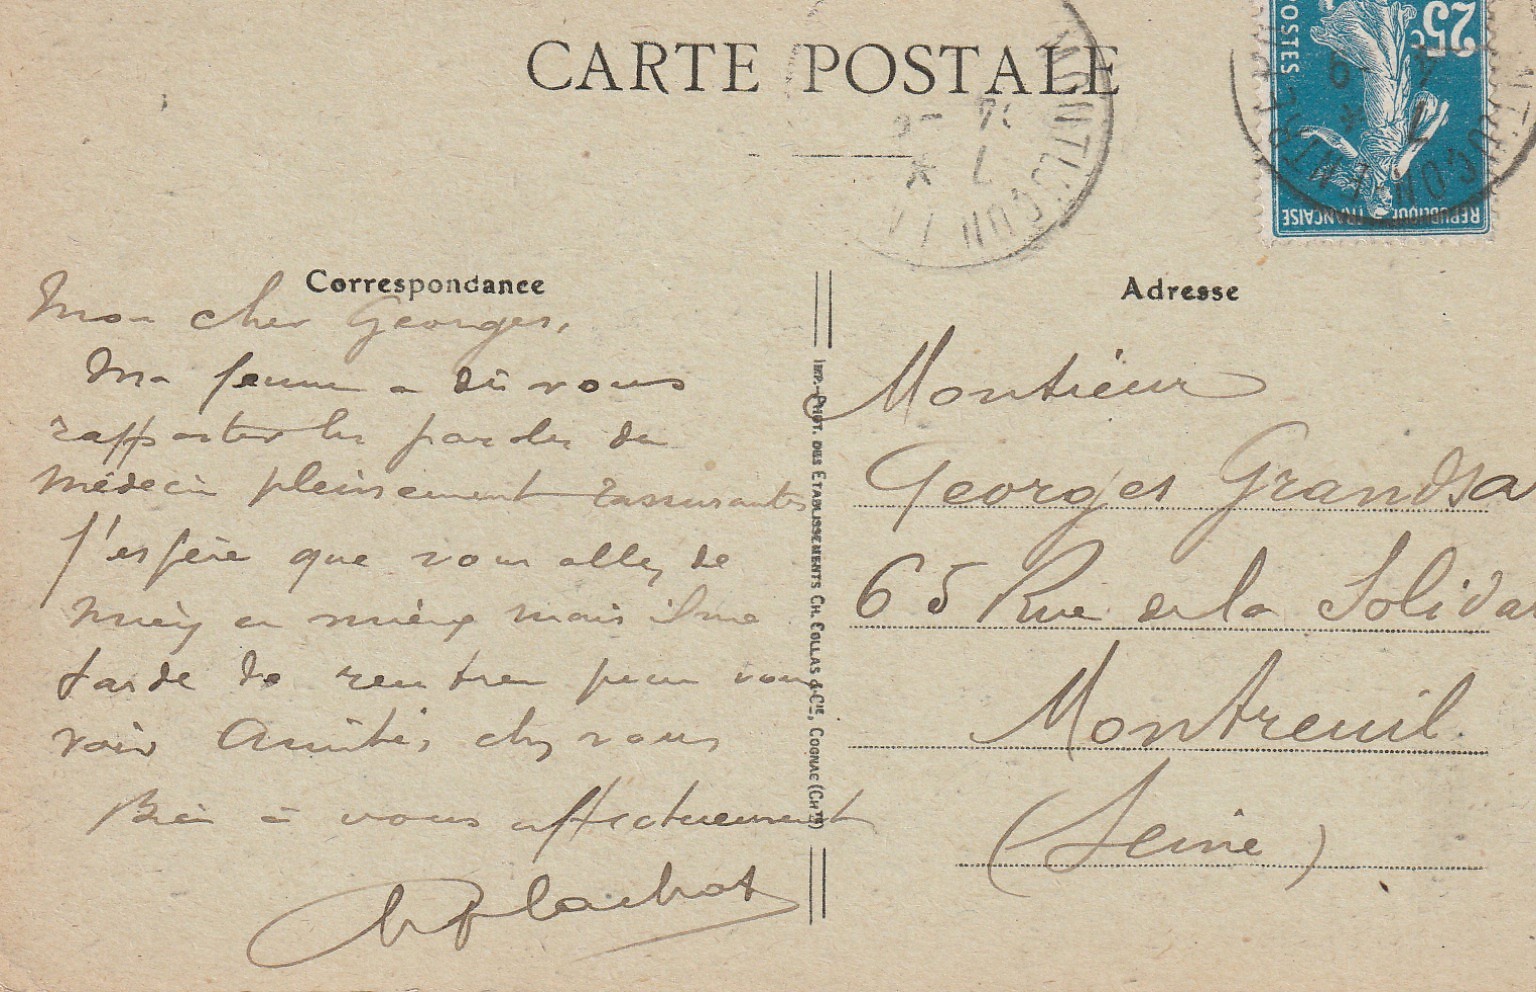 CARTE POSTALE
25c
POSTES
REPUBLIQUE FRANÇAISE
Correspondance
Mon cher Georges,
Ma femme a dû vous
rapporter les paroles du
médecin pleinement rassurantes
J'espère que vous allez de
mieux en mieux mais il me
tarde de rentrer pour vous
voir Amitiés chez vous
Bien à vous affectueusement
IMP.-PHOT. DES ETABLISSEMENTS CH. COLLAS & CIE, COGNAC (CHTE)
Adresse
Monsieur
Georges Grandsa
65 Rue de la Solida
Montreuil
(Seine)